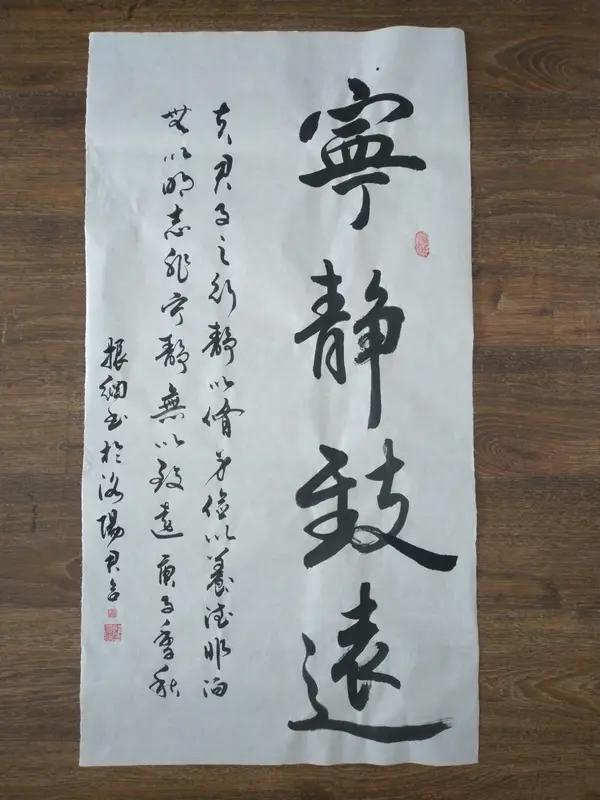 寧靜致遠
夫君子之行靜以脩身儉以養德非淡
無以明志非宁靜無以致遠庚子季秋
振綱書於洛陽